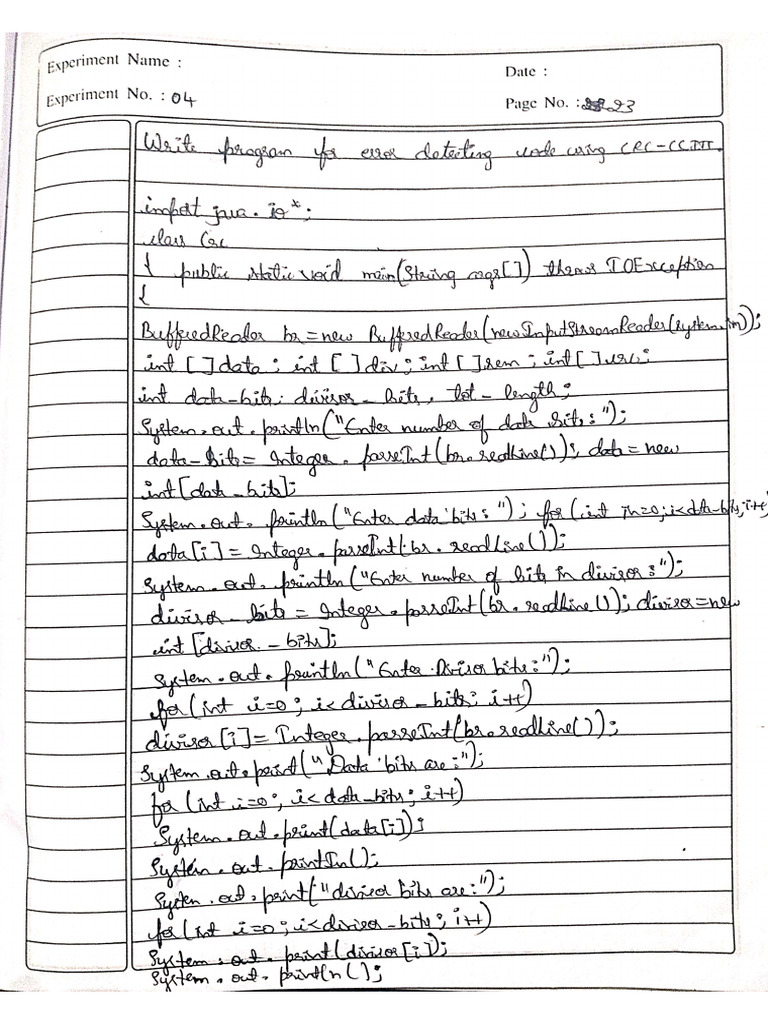 Experiment Name :
Date :
Experiment No. : 04
Page No. : 23
Write program for error detecting code using CRC-CCITT.
import java.io*;
class Crc
{ public static void main(String args[]) throws IOException
{
BufferedReader br=new BufferedReader(new InputStreamReader(system.in));
int []data ; int [ ]div ; int [ ]rem ; int[ ]crc;
int data-bits, divisor-bits, tot-length;
System.out.println("Enter number of data bits:");
data-bits= Integer.parseInt(br.readline()); data=new
int[data-bits];
System.out.println("Enter data bits:"); for(int i=0;i<data-bits;i++)
data[i]=Integer.parseInt(br.readLine());
System.out.println("Enter number of bits in divisor:");
divisor-bits = Integer.parseInt(br.readline()); divisor=new
int[divisor-bits];
System.out.println("Enter Divisor bits:");
for(int i=0; i<divisor-bits; i++)
divisor[i]=Integer.parseInt(br.readline());
System.out.print("Data bits are:");
for(int i=0; i<data-bits; i++)
System.out.print(data[i]);
System.out.println();
System.out.print("divisor bits are:");
for(int i=0; i<divisor-bits; i++)
System.out.print(divisor[i]);
System.out.println();